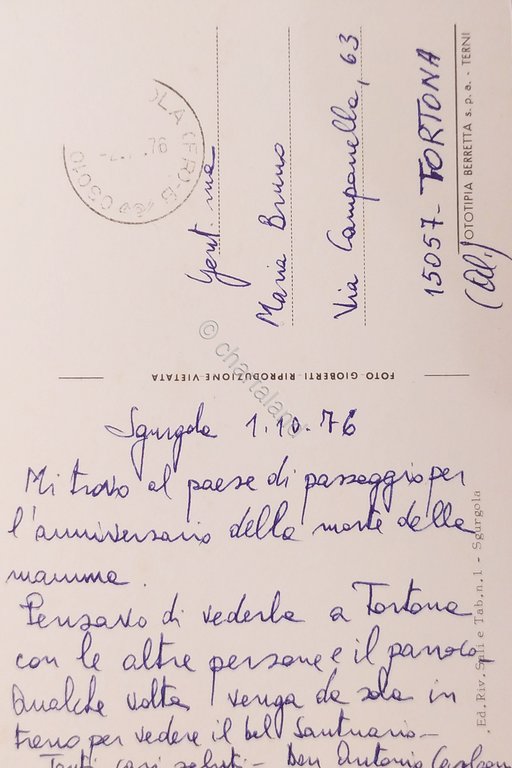 Sgurgola 1.10.76
Mi trovo al paese di passaggio per
l'anniversario della morte della
mamma.
Pensavo di vederla a Tortona
con le altre persone e il parroco
Qualche volta venga da sola in
treno per vedere il bel Santuario -
Tanti cari saluti - Don Antonio
Gent.ma
Maria Bruno
Via Campanella, 63
15057 - TORTONA
(Al)
OLA (FR)-B
03010
76
FOTO GIOBERTI RIPRODUZIONE VIETATA
OTOTIPIA BERRETTA s.p.a. - TERNI
Ed. Riv. Sali e Tab. n.1 - Sgurgola
© chartaland